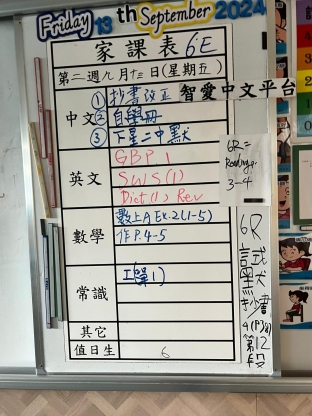 Friday 13 th September 2024
家課表 6E
第二週九月十三日(星期五)
中文
① 抄書改正
智愛中文平台
② 自學冊
③ 下星二中默
英文
GBP.1
SWS(1)
Dict(1) Rev
6R=
Readings
3-4
數學
數上A Ex.2(1-5)
作P.4-5
常識
工(1)
其它
值日生
6
6R
試
默
抄書
第12
段